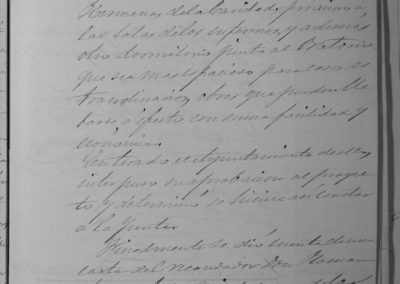 Hermanas de la Caridad, proximo á
las salas de los enfermos, y además
otro dormitorio junto al Oratorio
que sea mas espacioso para casos es
traordinarios, obras que pueden lle
barse á efecto con suma facilidad y
economia.
Enterado el Ayuntamiento de ello,
interpuso su aprobacion al proyec
to, y determinó se hiciere así constar
á la Junta.
Finalmente se dió cuenta de una
carta del recaudador Don Roman